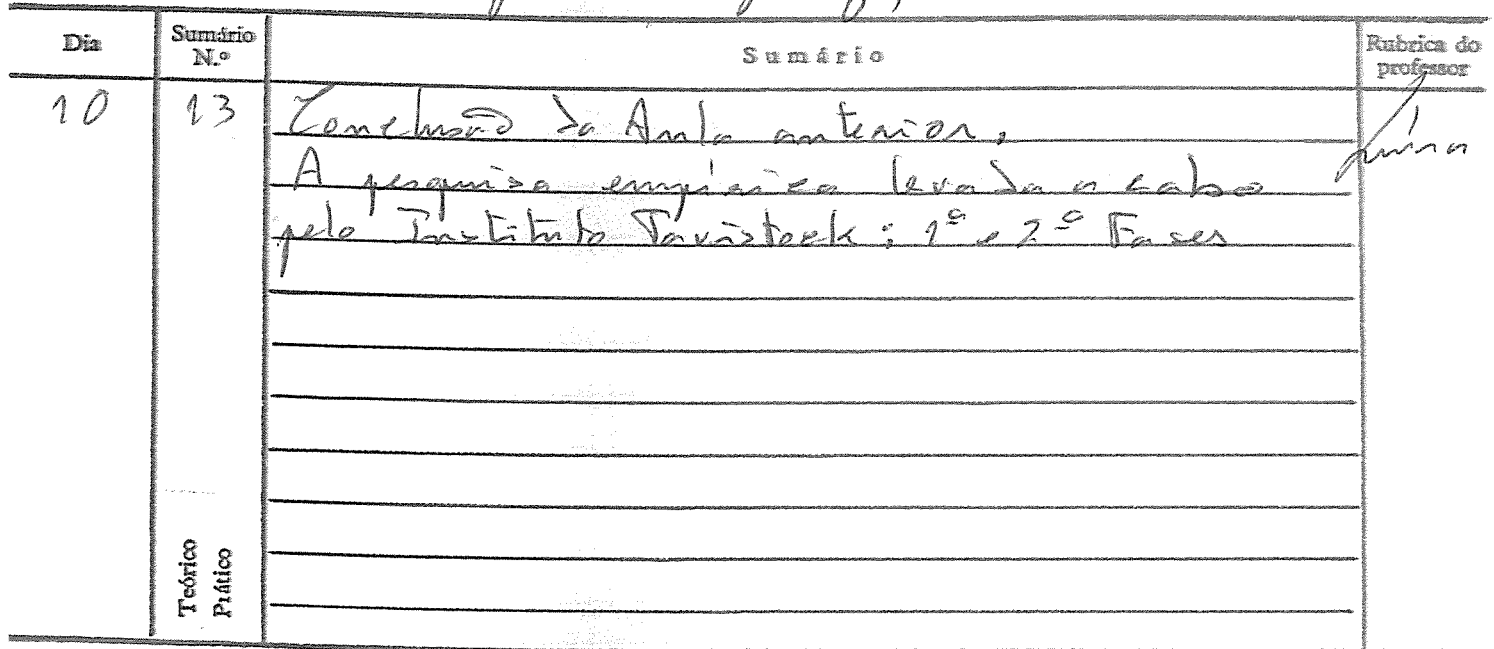 Dia
Sumário N.º
Sumário
Rubrica do professor
10
13
Conclusão da Aula anterior,
A pesquisa empírica levada a cabo
pelo Instituto Tavistock; 1ª e 2ª Fases
Teórico
Prático